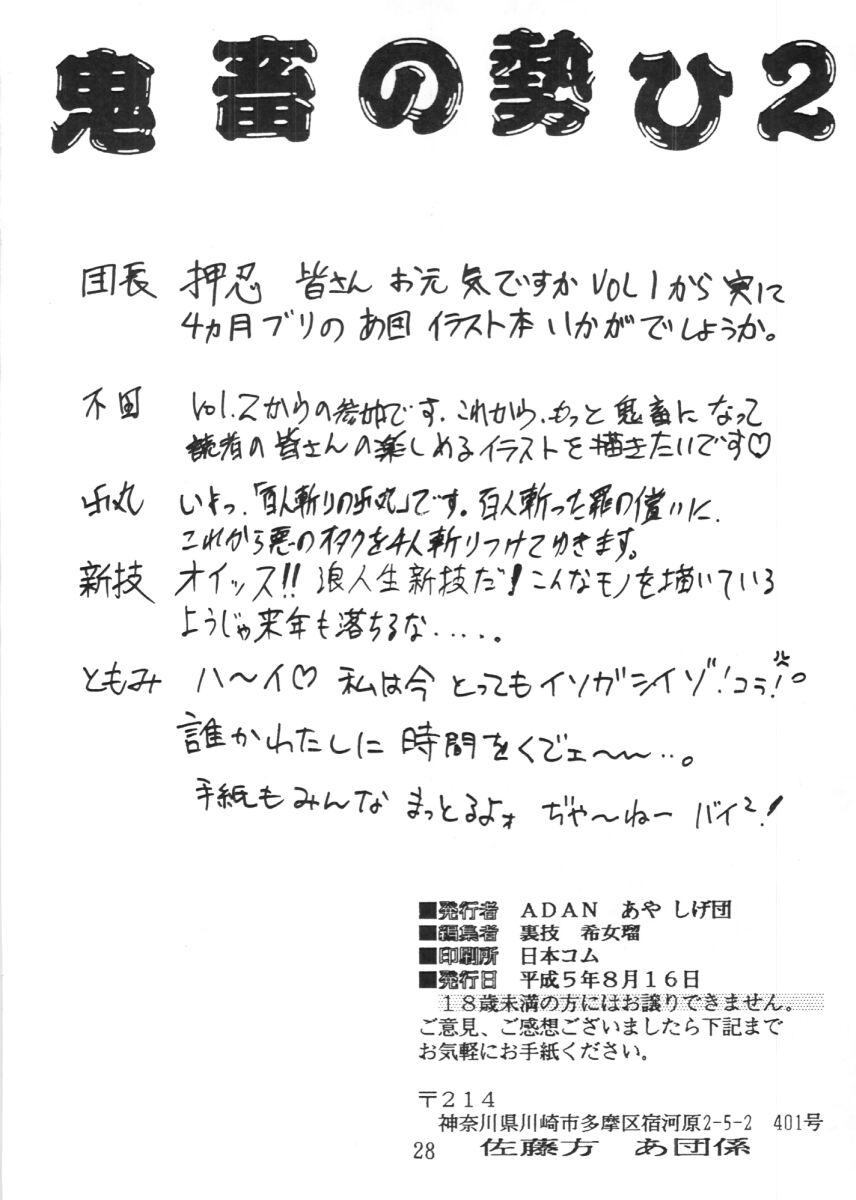 鬼畜の勢ひ2
団長 押忍 皆さん お元気ですか VOL1から実に
4ヵ月ブリの あ団 イラスト本 いかがでしょうか。
不田 Vol.2からの参加です。これから、もっと鬼畜になって
読者の皆さんの楽しめるイラストを描きたいです♡
丸 いよっ、「百人斬りの丸」です。百人斬った罪の償いに、
これから悪のオタクを4人斬りつけてゆきます。
新技 オイッス!! 浪人生新技だ!こんなモノを描いている
ようじゃ来年も落ちるな.....。
ともみ ハ〜イ♡ 私は今 とってもイソガシイゾ!コラ!。
誰かわたしに 時間をくでェ〜〜...。
手紙もみんな まっとるよォ ぢゃ〜ねー バイ2!
■発行者 ADAN あや しげ団
■編集者 裏技 希女瑠
■印刷所 日本コム
■発行日 平成5年8月16日
18歳未満の方にはお譲りできません。
ご意見、ご感想ございましたら下記まで
お気軽にお手紙ください。
〒214
神奈川県川崎市多摩区宿河原2-5-2 401号
28 佐藤方 あ団係